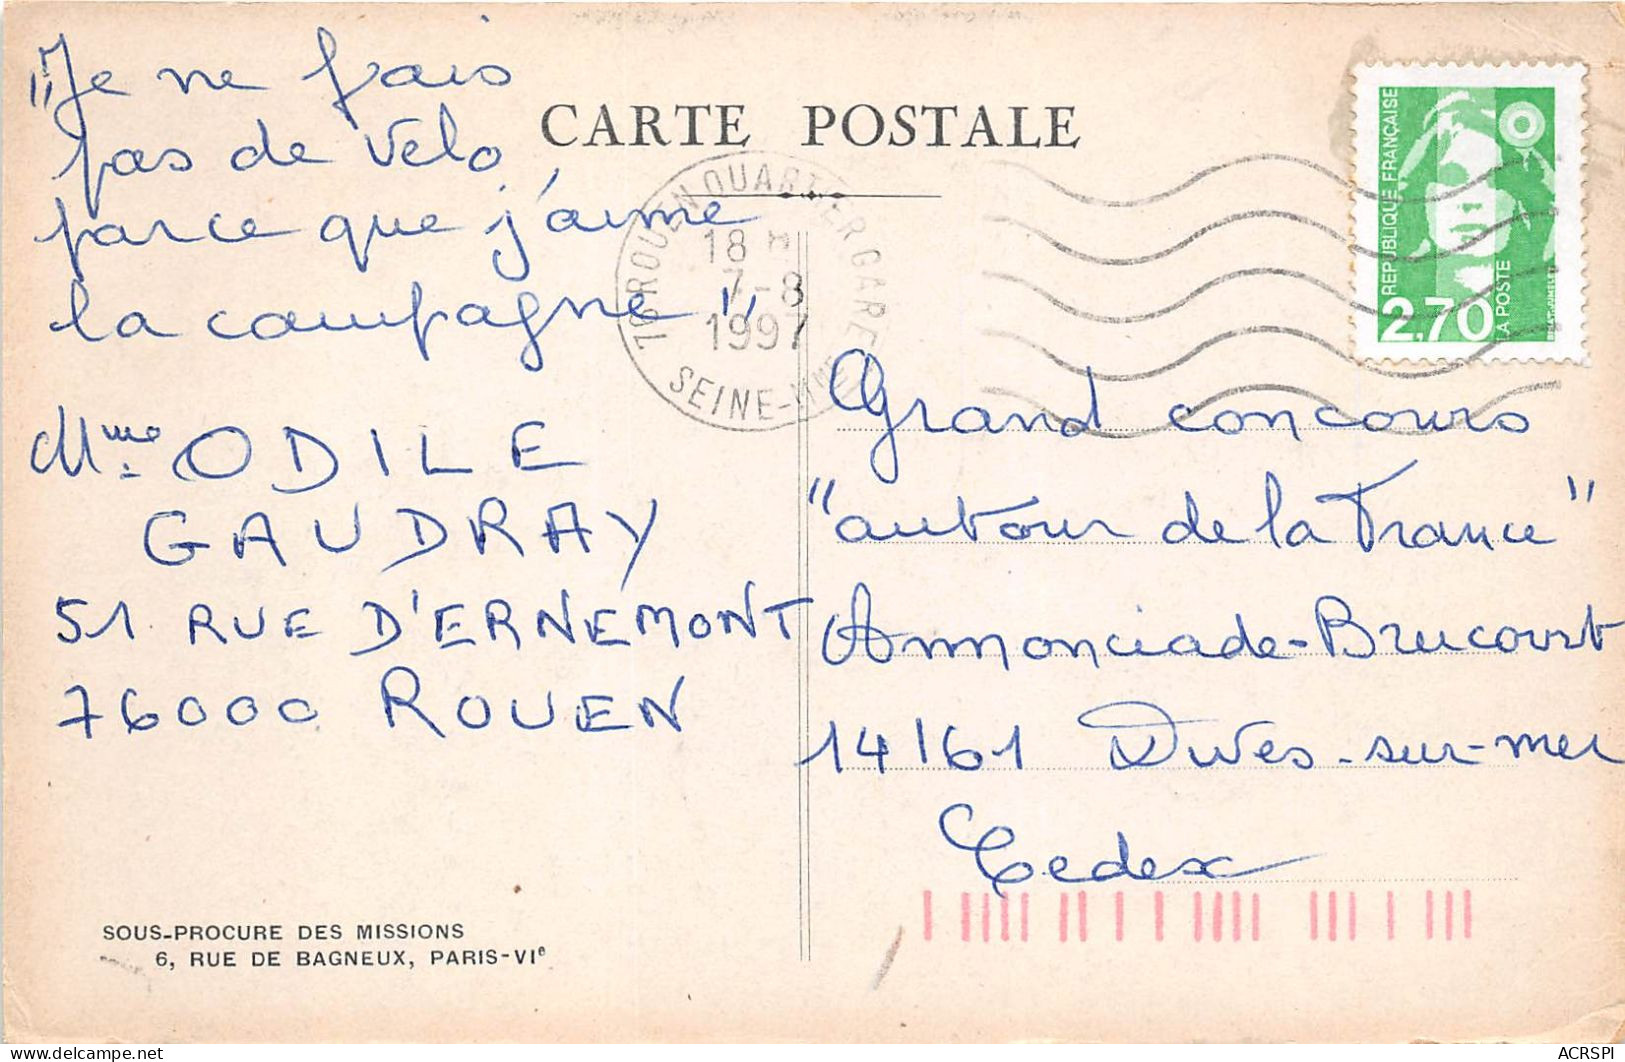 "Je ne fais
pas de velo,
parce que j'aime
la campagne"
Mme ODILE
GAUDRAY
51 RUE D'ERNEMONT
76000 ROUEN
SOUS-PROCURE DES MISSIONS
6, RUE DE BAGNEUX, PARIS-VIe
CARTE POSTALE
76 ROUEN QUARTIER GARE
18 H
7-8
1997
SEINE-MME
REPUBLIQUE FRANÇAISE
2,70
LA POSTE
Grand concours
"autour de la France"
Annonciade-Brucourt
14161 Dives-sur-mer
Cedex
ACRSPI